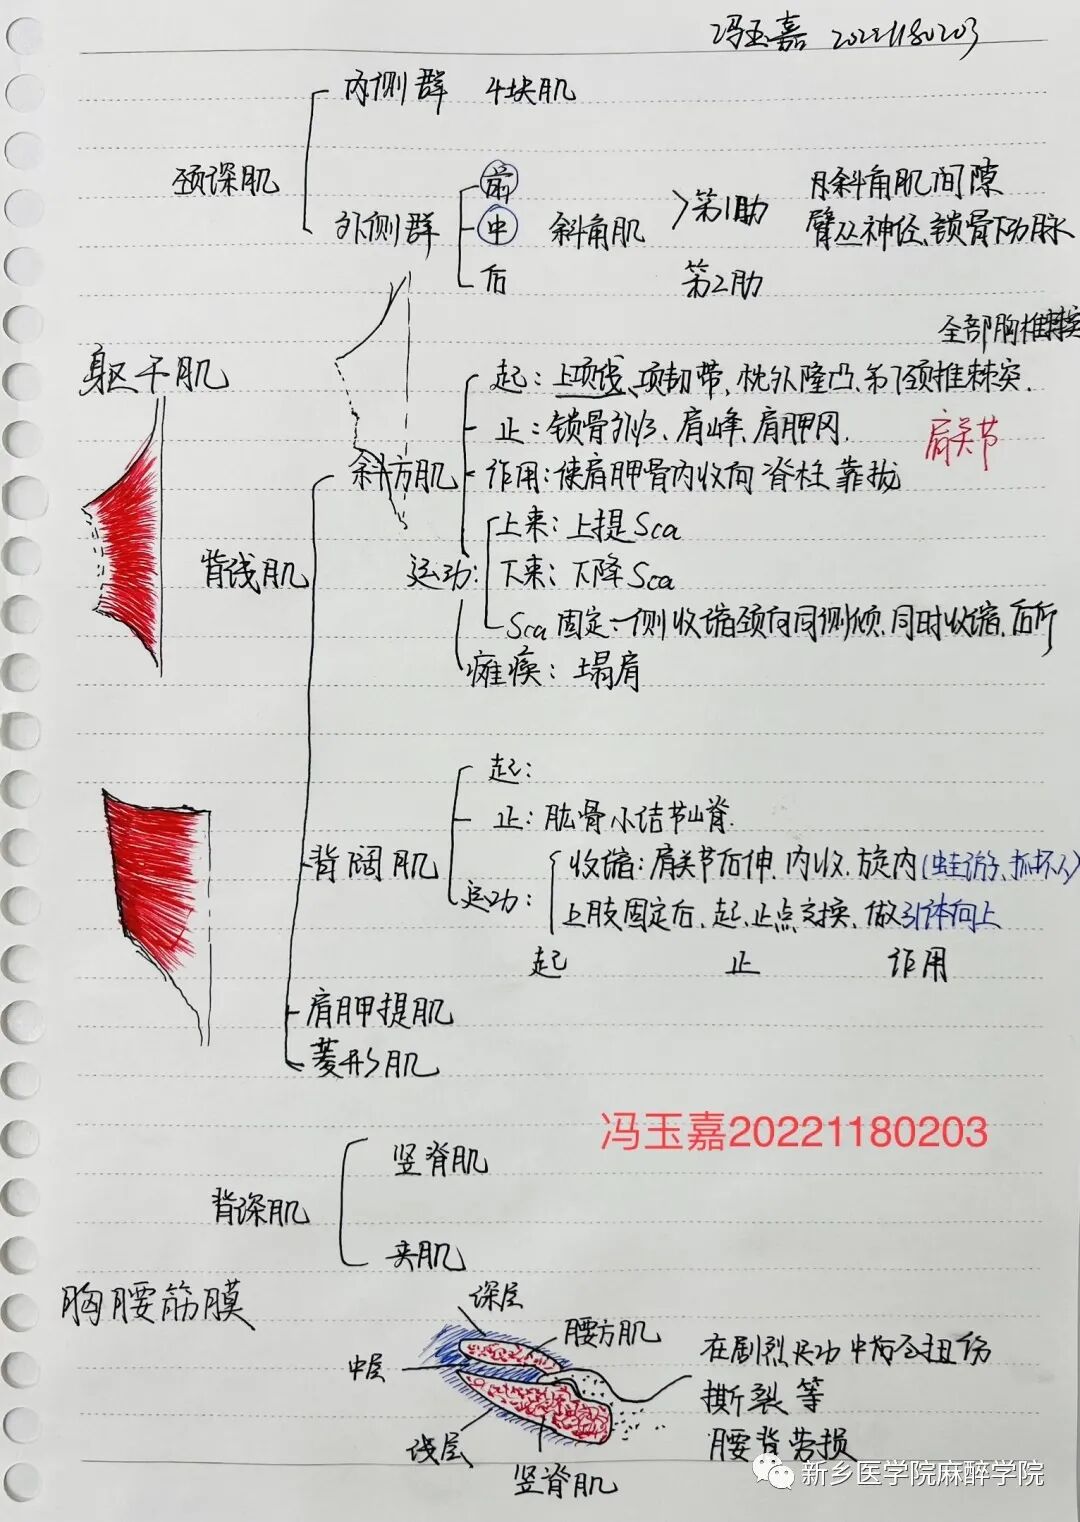 冯玉嘉 20221180203
内侧群 4块肌
颈深肌
外侧群
前
中 斜角肌 >第1肋
后 第2肋
斜角肌间隙
臂丛神经、锁骨下动脉
全部胸椎棘突
躯干肌
背浅肌
斜方肌
起：上项线、项韧带、枕外隆凸、第7颈椎棘突.
止：锁骨外1/3、肩峰、肩胛冈.
肩关节
作用：使肩胛骨内收向脊柱靠拢
运动：
上束：上提Sca
下束：下降Sca
Sca固定一侧收缩颈向同侧倾.同时收缩.后仰
瘫痪：塌肩
背阔肌
起：
止：肱骨小结节山脊.
运动：
收缩：肩关节后伸.内收.旋内(蛙泳、抓坏人)
上肢固定后.起、止点交换.做引体向上
起 止 作用
肩胛提肌
菱形肌
冯玉嘉20221180203
背深肌
竖脊肌
夹肌
胸腰筋膜
深层
腰方肌
中层
浅层
竖脊肌
在剧烈运动中扭伤
撕裂等
腰背劳损
新乡医学院麻醉学院